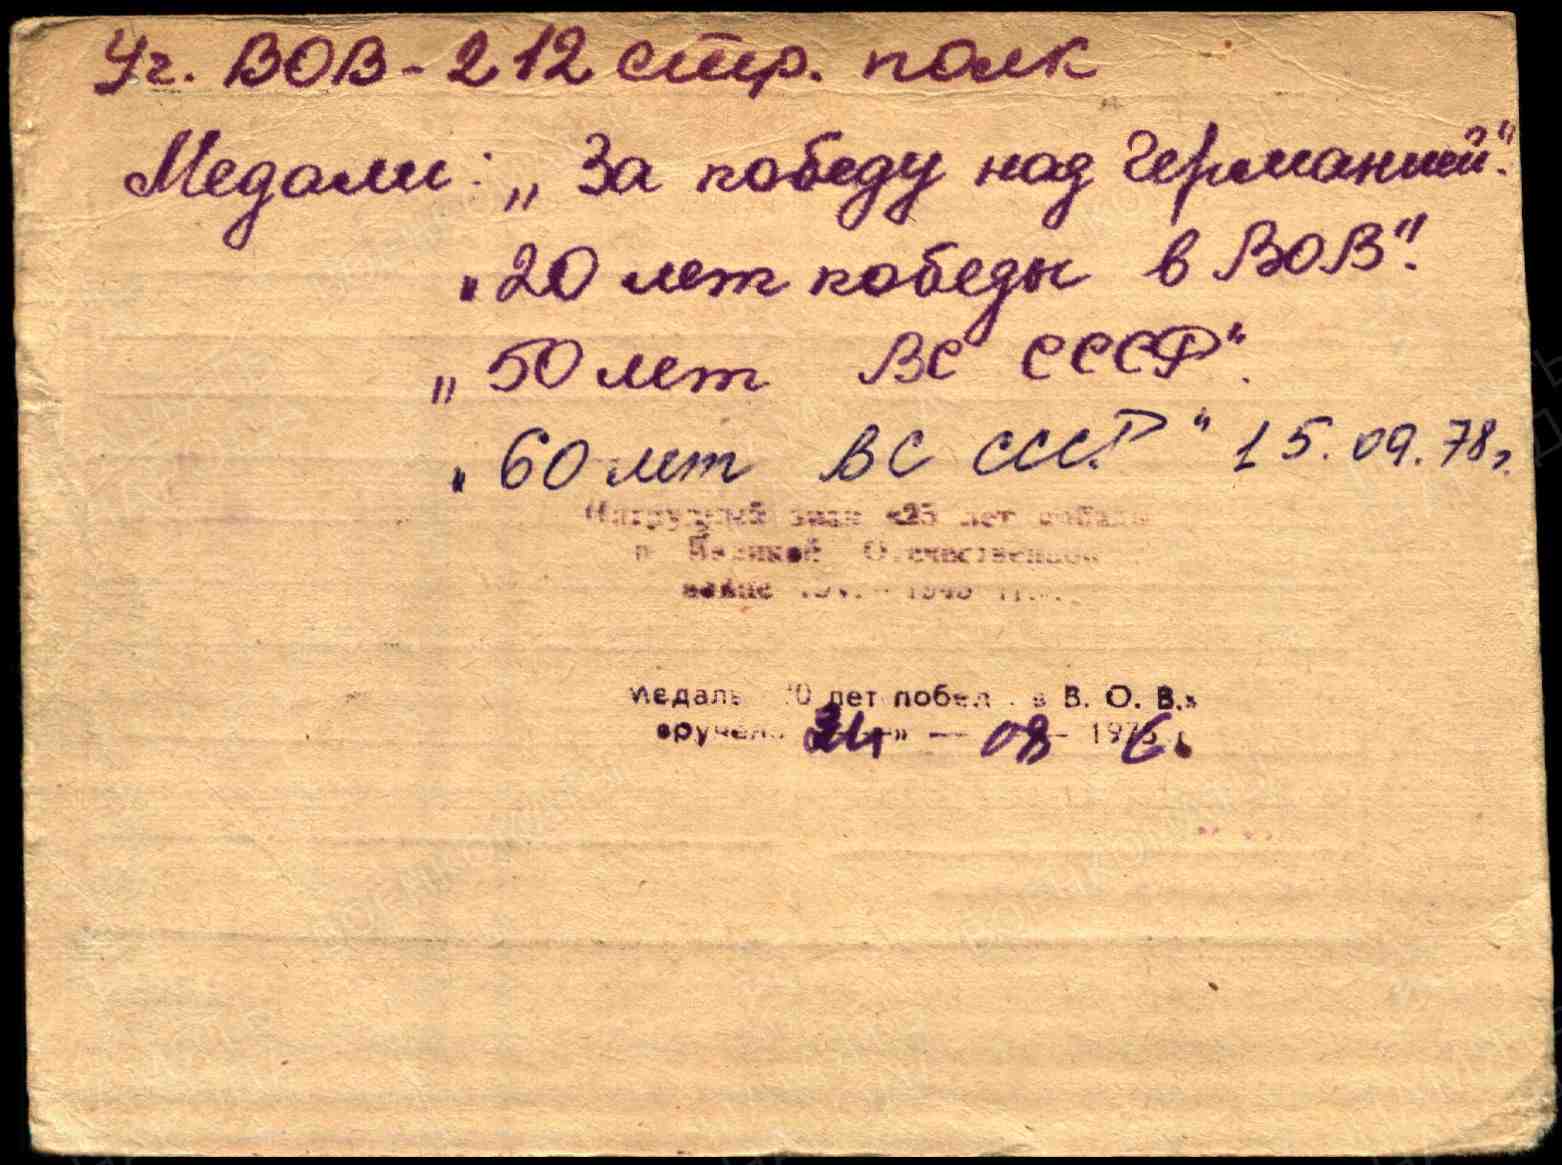 Уч. ВОВ - 212 стр. полк
Медали: „За победу над Германией".
„20 лет победы в ВОВ".
„50 лет ВС СССР".
„60 лет ВС СССР" 15.09.78г.
Нагрудный знак «25 лет победы
в Великой Отечественной
войне 1945
Медаль 30 лет победы в В. О. В.»
вручена » — 08 — 1976